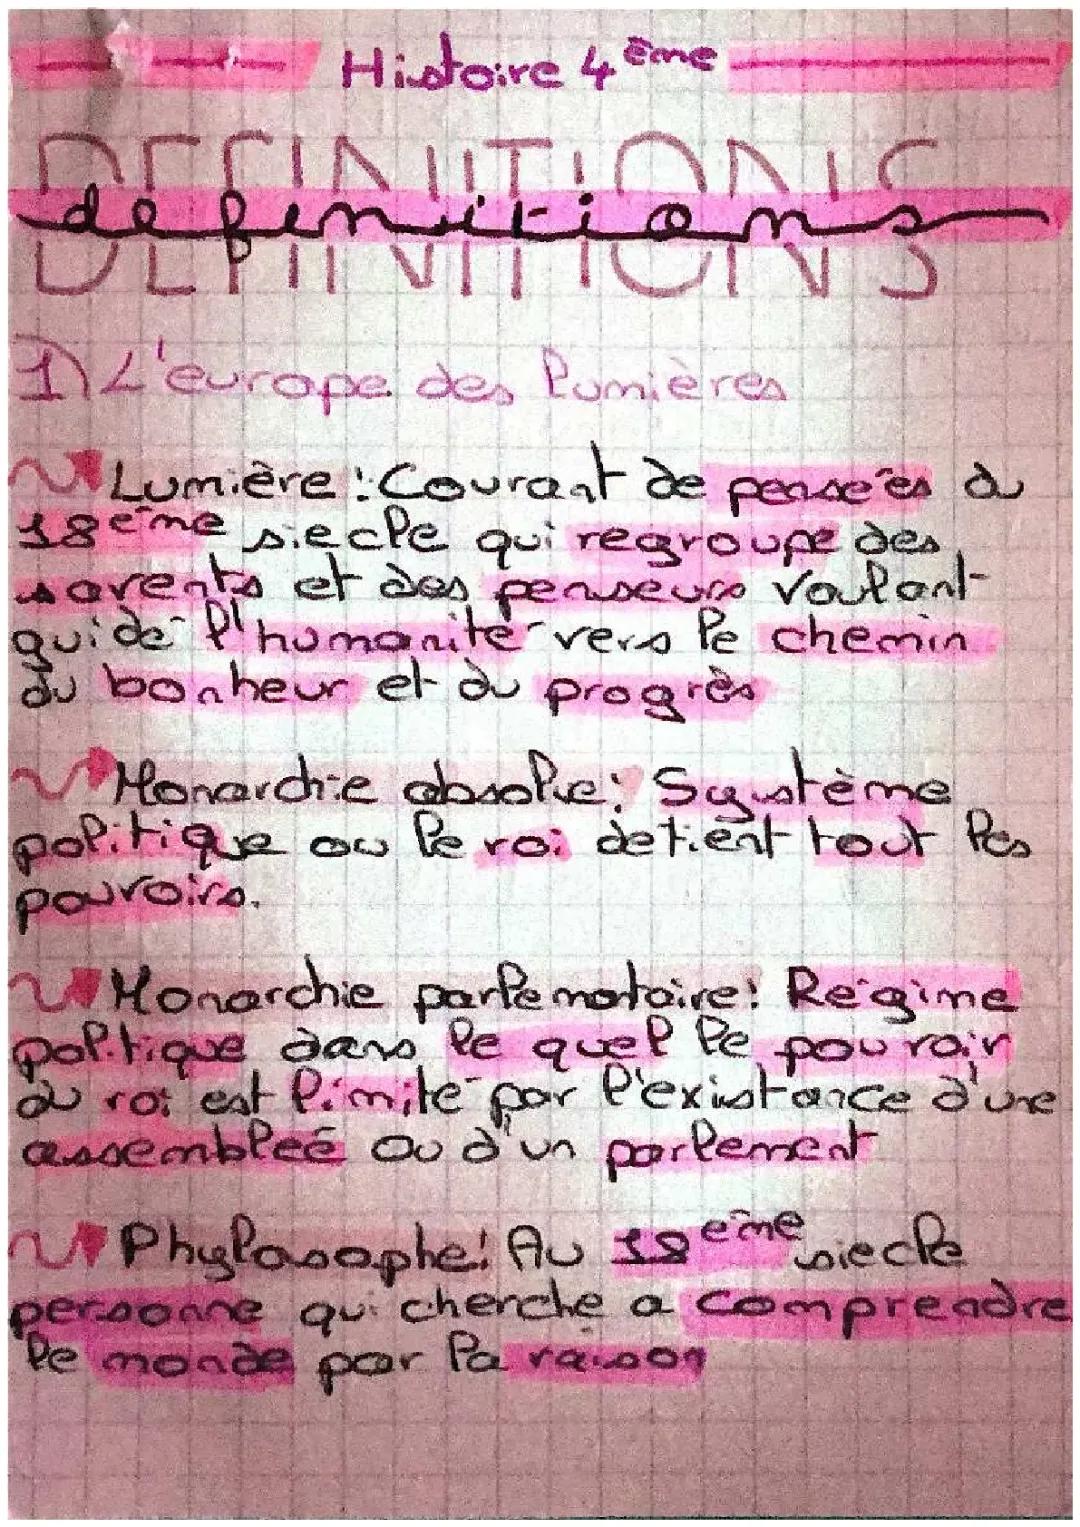 Histoire 4ème
DEFINITIONS
definitions
DEFINITIONS
1) L'europe des lumières
Lumière : Courant de pensées du
18ème siecle qui regroupe des
savents et des penseurs voulant
guidé l'humanité vers le chemin
du bonheur et du progrès
Monarchie absolue : Système
politique ou le roi detient tout les
pouvoirs.
Monarchie parlemataire : Régime
politique dans le quel le pouvoir
du roi est limité par l'existance d'une
assembleé ou d'un parlement
Phylosophe : Au 18ème siecle
personne qui cherche a comprendre
le monde par la raison